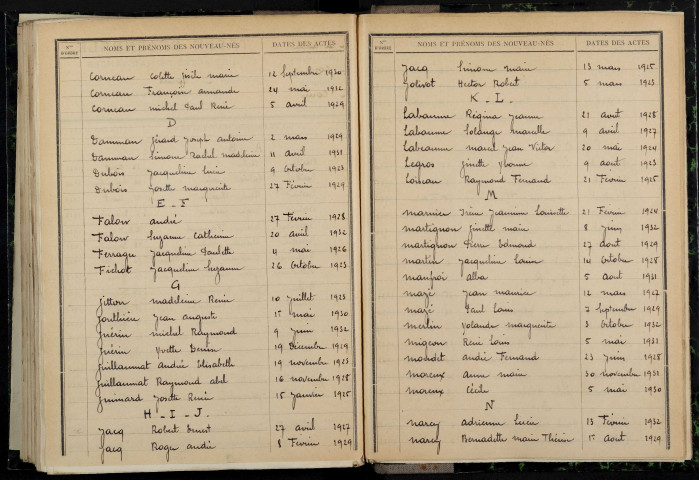 Nos D'ORDRE NOMS ET PRÉNOMS DES NOUVEAU-NÉS DATES DES ACTES
Corneau Colette Gisèle marie 12 Septembre 1930
Corneau Françoise armande 24 mai 1932
Corneau michel Paul René 5 avril 1929
D
Damman Gérard Joseph antoine 2 mars 1929
Damman Simone Rachel madeleine 11 avril 1931
Dubois Jacqueline Lucie 9 Octobre 1923
Dubois Josette marguerite 27 Février 1929
E - F
Falour andré 27 Février 1928
Falour Suzanne Catherine 20 avril 1932
Ferragu Jacqueline Paulette 4 mai 1926
Fichot Jacqueline Suzanne 26 Octobre 1923
G
Gitton madeleine Renée 10 Juillet 1923
Jean auguste 1er mai 1930
Guérin michel Raymond 9 Juin 1932
Guérin Yvette Denise 19 Décembre 1929
Guillaumat andrée Elisabeth 19 novembre 1923
Guillaumat Raymond abel 16 novembre 1928
Guimard Josette Renée 15 Janvier 1925
H - I - J
Jacq Robert Ernest 27 avril 1927
Jacq Roger andré 8 Février 1929
Nos D'ORDRE NOMS ET PRÉNOMS DES NOUVEAU-NÉS DATES DES ACTES
Jacq Simone marie 13 mars 1925
Jolivot Hector Robert 5 mars 1923
K - L
Labaume Régina Jeanne 21 août 1928
Labaume Solange marcelle 9 avril 1927
Labeaume marcel Jean Victor 20 mai 1924
Legros Ginette Yvonne 9 août 1923
Loiseau Raymond Fernand 21 Février 1925
M
Irène Jeannine 21 Février 1924
martignon Ginette marie 8 Juin 1932
martignon Pierre Edmond 27 août 1929
martin Jacqueline Louise 14 Octobre 1928
alba 5 août 1931
mazé Jean maurice 12 mars 1927
mazé Paul Louis 7 Septembre 1929
merlin Yolande marguerite 3 Octobre 1932
migeon René Louis 5 mai 1932
moudet andré Fernand 23 Juin 1928
moreux anne marie 30 novembre 1931
moreux Cécile 5 mai 1930
N
narcy adrienne Lucie 13 Février 1932
narcy Bernadette marie Thérèse 1er août 1929